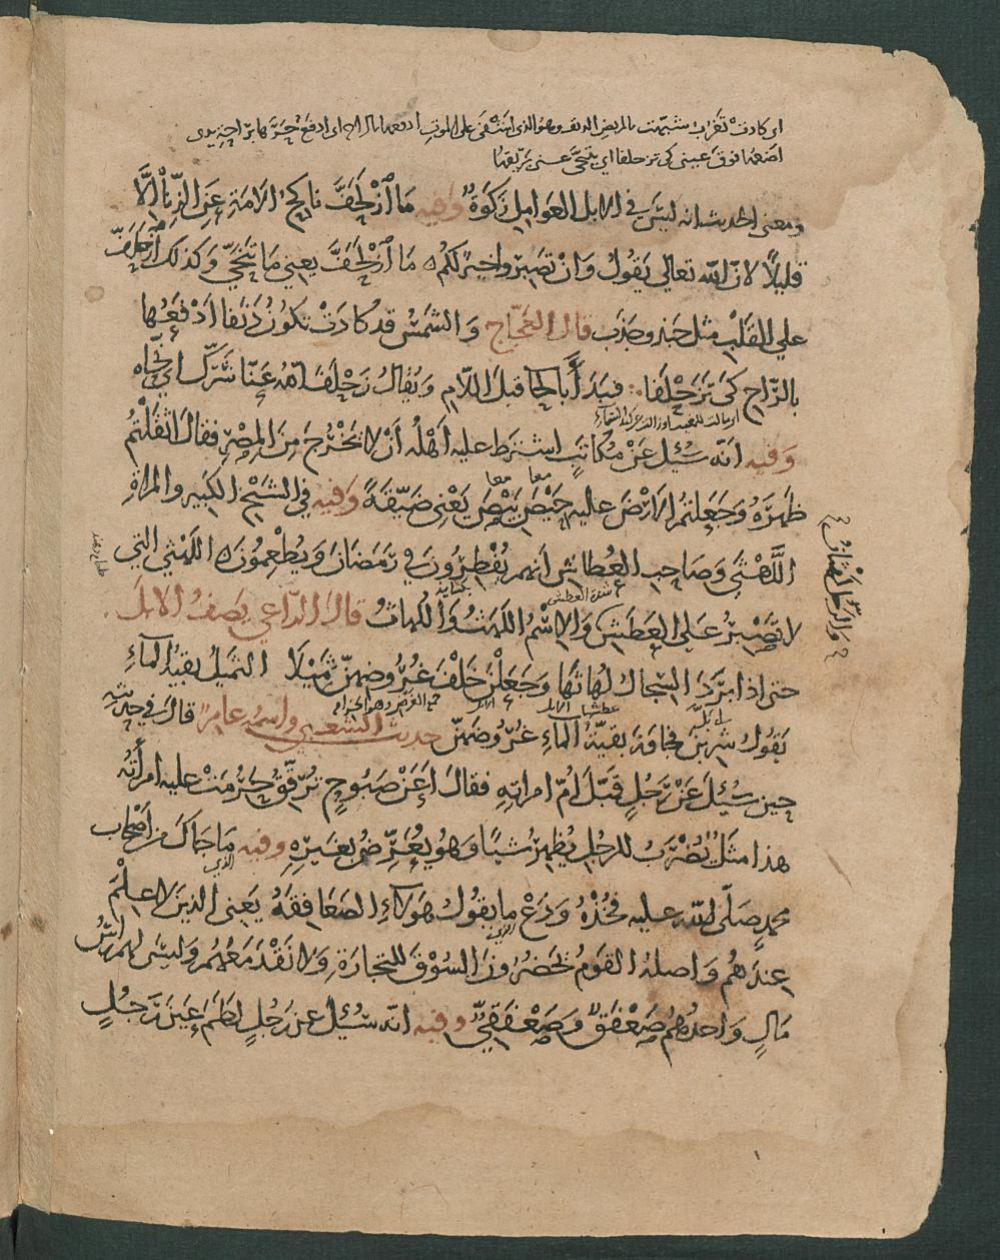 اى كادت تغرب شبهت بالمريض الدنف وهو الذى اشفى على الموت ادفعها بالراح اى ادفع حرّها براحة يدى
اضعها فوق عينى كى تزحلفا اي تتنحّى عنى بربعها
ومعنى الحديث انه ليس في الابل العوامل زكوة وفيه ما ازْلَحَفَّ ناكح الامة عن الزنا الّا
قليلًا لانّ الله تعالى يقول وان تصبروا خير لكم ما ازْلحَفَّ يعني ما تنحّى وكذلك ازحلفّ
على القلب مثل جبذ وجذب قال العجّاج والشمس قد كادت تكون دَنَفا ادفعُها
بالرّاح كى تزحلفا فبدأ بالحا قبل اللام ويقال زحلف الله عنّا شرّك اي نحّاه
وفيه انه سُئل عن مكاتبٍ اشترط عليه اهلُه ان لا يخرج من المصر فقال اثقلتم
ظهره وجعلتم الارض عليه حَيْصَ بَيْصَ يعني ضيّقةً وفيه في الشيخ الكبير والمراة
معا معا
اللَّهْثَى وصاحب العُطاش انهم يفطرون في رمضان ويطعمون اللهثى التي
لا تصبر على العطش والاسم اللهَثُ واللُهاث قال الراعي يصف الابل
شدة العطش
حتى اذا برّد السجال لهاثها وجعلن خلف غروضهن ثميلا الثميل بقية الماء
يقول شربن مخافة بقيّة الماء غروضهنّ حديث الشعبي واسمه عامر قال في حديثه
حين سُئل عن رجل قبّل امّ امراته فقال اعن صبوح تُرقّق حرمت عليه امرأته
هذا مثل يُضرب للرجل يظهر شيئا وهو يُعرّض بغيره وفيه ما جاك من اصحاب
محمد صلّى الله عليه فخذه ودع ما يقول هؤلاء الصعافقة يعنى الذين لا علم
عندهم واصله القوم يحضرون السوق للتجارة ولا نقد معهم وليس لهم راس
مال واحدهم صَعْفَق وصَعْفَقيّ وفيه انه سُئل عن رجل لطم عين رجل
والرجل